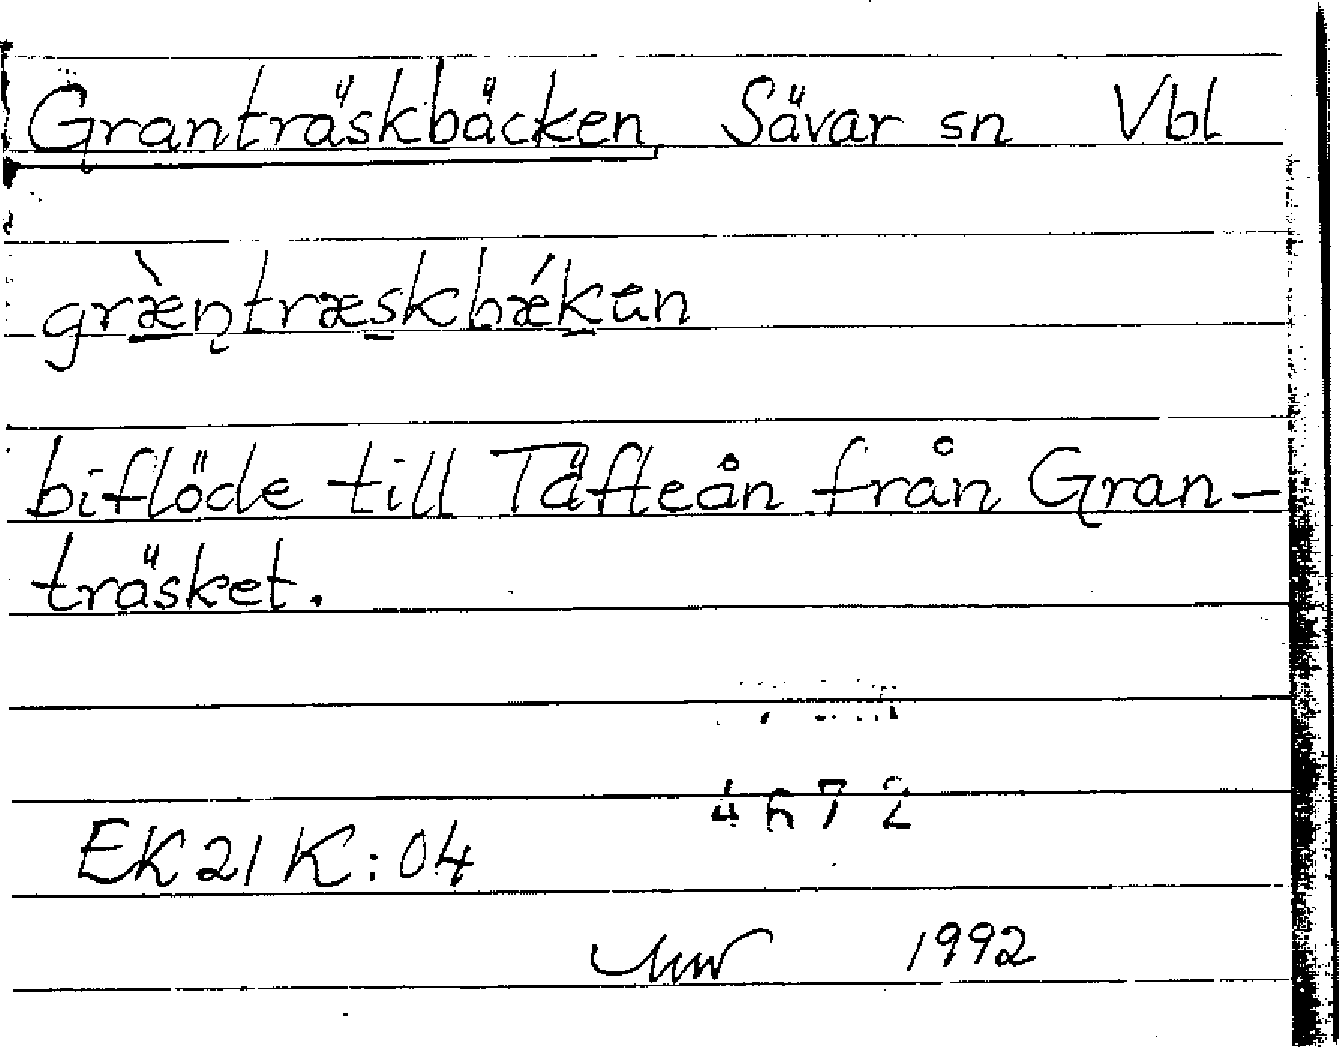 Granträskbäcken Sävar sn Vbl
græ̀ntræskbǽkən
biflöde till Täfteån från Gran-
träsket.
4672
EK 21 K:04
1992